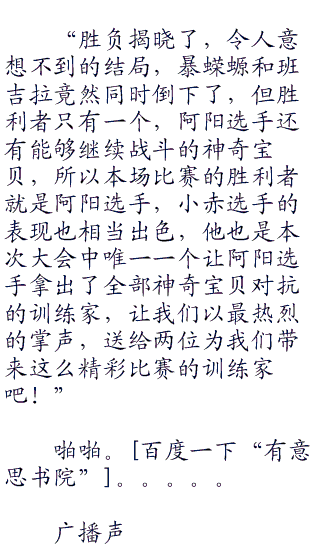 “胜负揭晓了，令人意
想不到的结局，暴蝾螈和班
吉拉竟然同时倒下了，但胜
利者只有一个，阿阳选手还
有能够继续战斗的神奇宝
贝，所以本场比赛的胜利者
就是阿阳选手，小赤选手的
表现也相当出色，他也是本
次大会中唯一一个让阿阳选
手拿出了全部神奇宝贝对抗
的训练家，让我们以最热烈
的掌声，送给两位为我们带
来这么精彩比赛的训练家
吧！”
啪啪。[百度一下“有意
思书院”]。。。。。
广播声